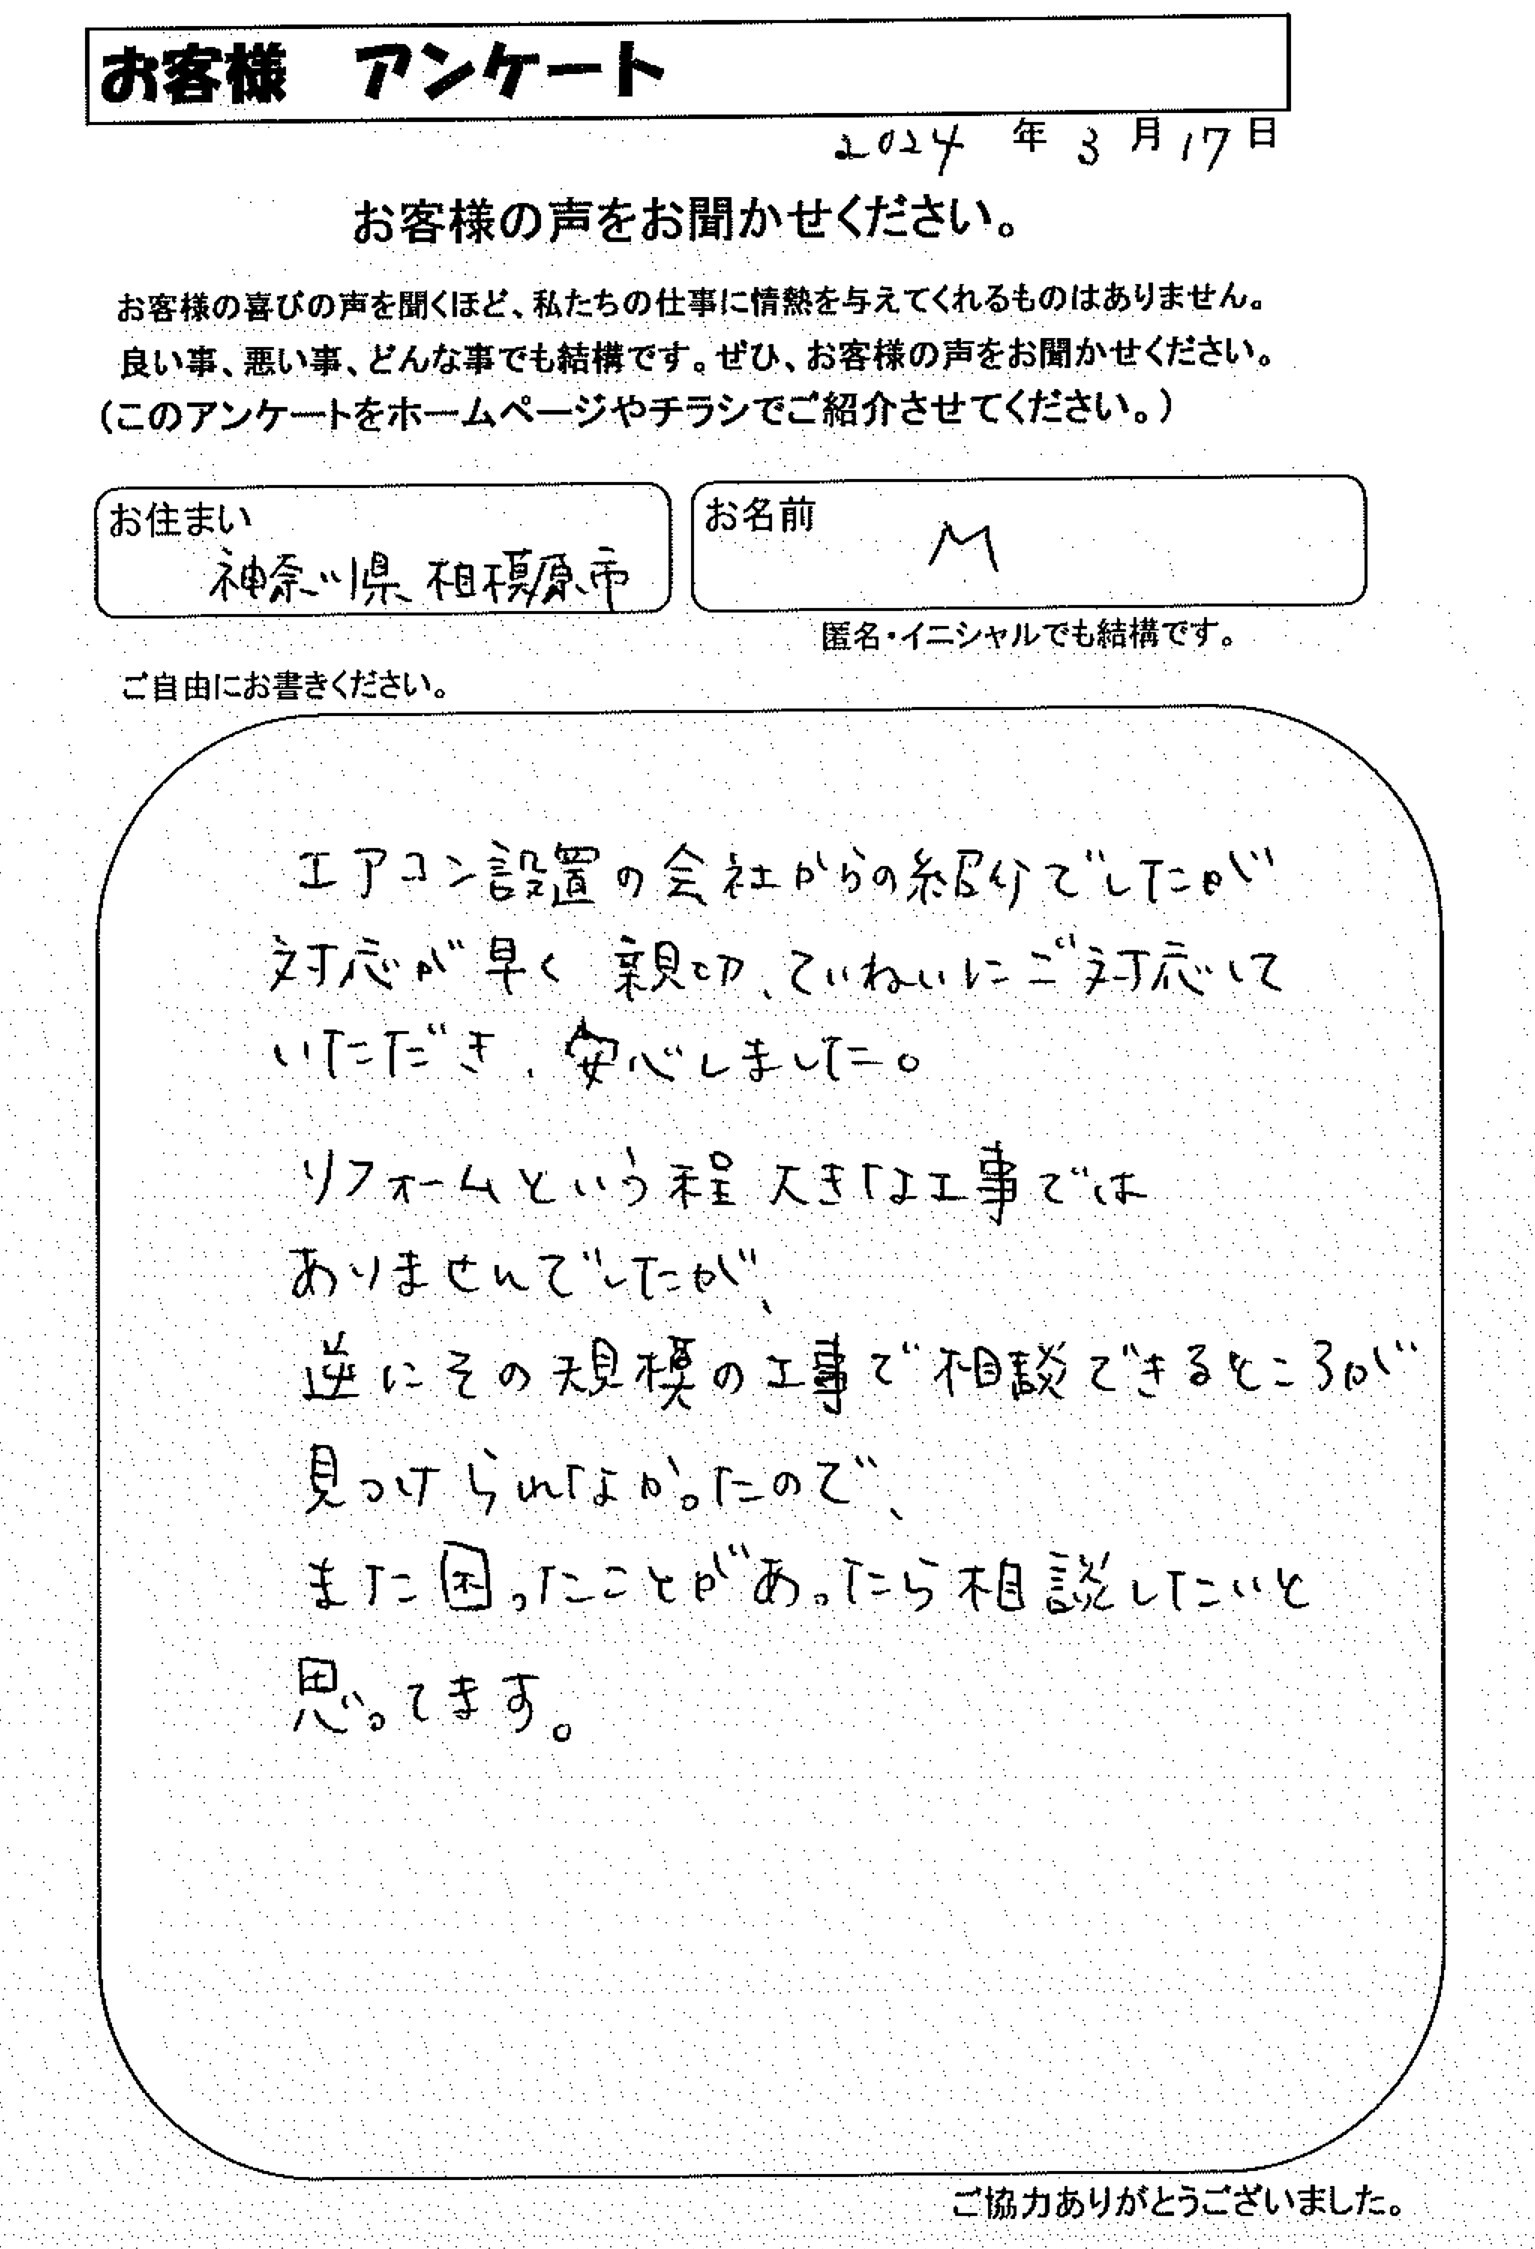 お客様 アンケート
2024 年 3 月 17 日
お客様の声をお聞かせください。
お客様の喜びの声を聞くほど、私たちの仕事に情熱を与えてくれるものはありません。
良い事、悪い事、どんな事でも結構です。ぜひ、お客様の声をお聞かせください。
（このアンケートをホームページやチラシでご紹介させてください。）
お住まい
神奈川県 相模原市
お名前
M
匿名・イニシャルでも結構です。
ご自由にお書きください。
エアコン設置の会社からの紹介でしたが
対応が早く 親切、ていねいにご対応して
いただき、安心しました。
リフォームという程 大きな工事では
ありませんでしたが、
逆にその規模の工事で相談できるところが
見つけられなかったので、
また困ったことがあったら相談したいと
思ってます。
ご協力ありがとうございました。